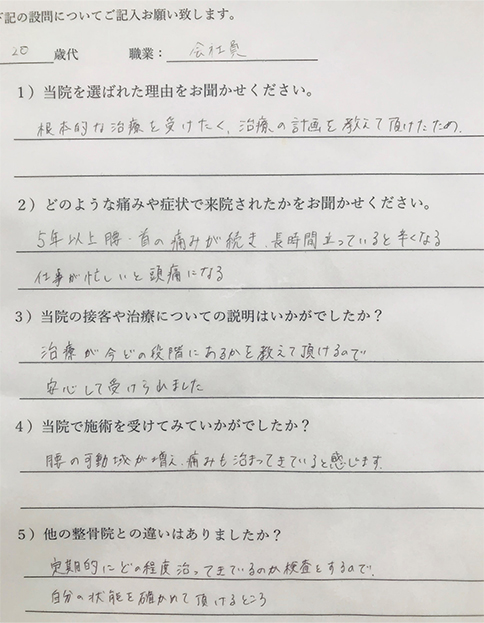 下記の設問についてご記入お願い致します。
20 歳代 職業： 会社員
1）当院を選ばれた理由をお聞かせください。
根本的な治療を受けたく、治療の計画を教えて頂けたため。
2）どのような痛みや症状で来院されたかをお聞かせください。
5年以上腰・首の痛みが続き、長時間立っていると辛くなる
仕事が忙しいと頭痛になる
3）当院の接客や治療についての説明はいかがでしたか？
治療が今どの段階にあるかを教えて頂けるので
安心して受けられました
4）当院で施術を受けてみていかがでしたか？
腰の可動域が増え、痛みも治まってきていると感じます。
5）他の整骨院との違いはありましたか？
定期的にどの程度治ってきているのか検査をするので、
自分の状態を確かめて頂けるところ